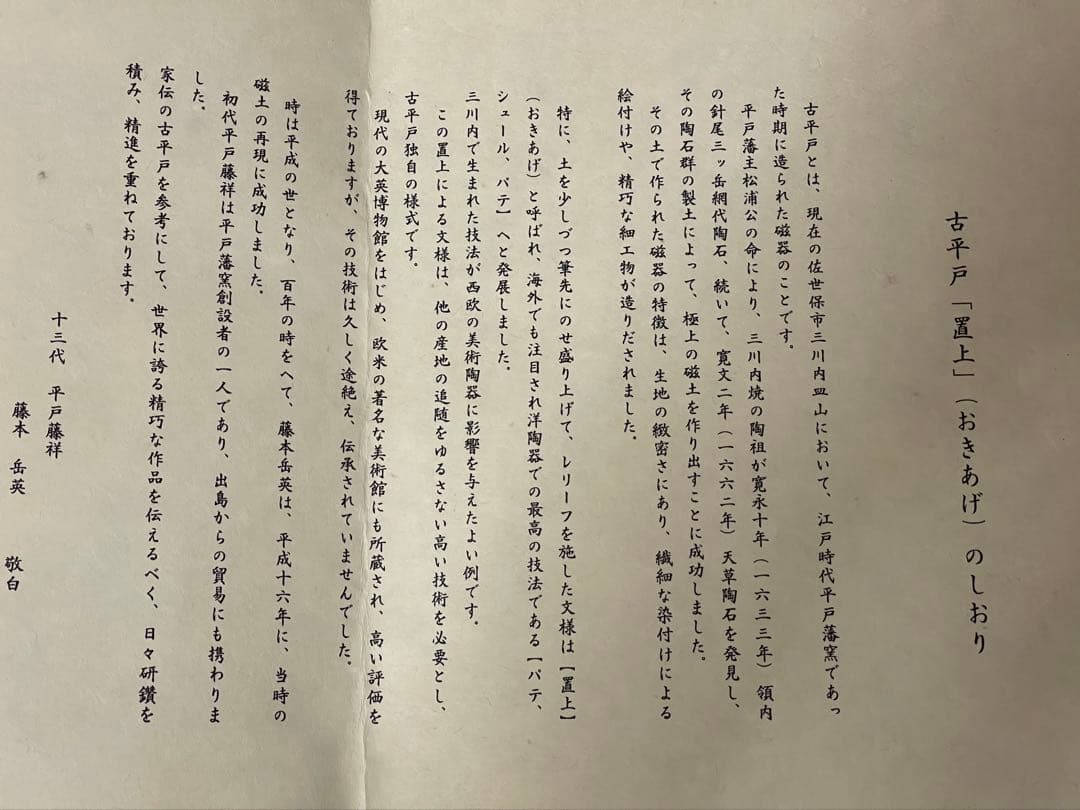 古平戸「置上」（おきあげ）のしおり
古平戸とは、現在の佐世保市三川内皿山において、江戸時代平戸藩窯であっ
た時期に造られた磁器のことです。
平戸藩主松浦公の命により、三川内焼の陶祖が寛永十年（一六三三年）領内
の針尾三ッ岳網代陶石、続いて、寛文二年（一六六二年）天草陶石を発見し、
その陶石群の製土によって、極上の磁土を作り出すことに成功しました。
その土で作られた磁器の特徴は、生地の緻密さにあり、繊細な染付けによる
絵付けや、精巧な細工物が造りだされました。
特に、土を少しづつ筆先にのせ盛り上げて、レリーフを施した文様は【置上】
（おきあげ）と呼ばれ、海外でも注目され洋陶器での最高の技法である【パテ、
シュール、パテ】へと発展しました。
三川内で生まれた技法が西欧の美術陶器に影響を与えたよい例です。
この置上による文様は、他の産地の追随をゆるさない高い技術を必要とし、
古平戸独自の様式です。
現代の大英博物館をはじめ、欧米の著名な美術館にも所蔵され、高い評価を
得ておりますが、その技術は久しく途絶え、伝承されていませんでした。
時は平成の世となり、百年の時をへて、藤本岳英は、平成十六年に、当時の
磁土の再現に成功しました。
初代平戸藤祥は平戸藩窯創設者の一人であり、出島からの貿易にも携わりま
した。
家伝の古平戸を参考にして、世界に誇る精巧な作品を伝えるべく、日々研鑽を
積み、精進を重ねております。
十三代　平戸藤祥
藤本　岳英　敬白